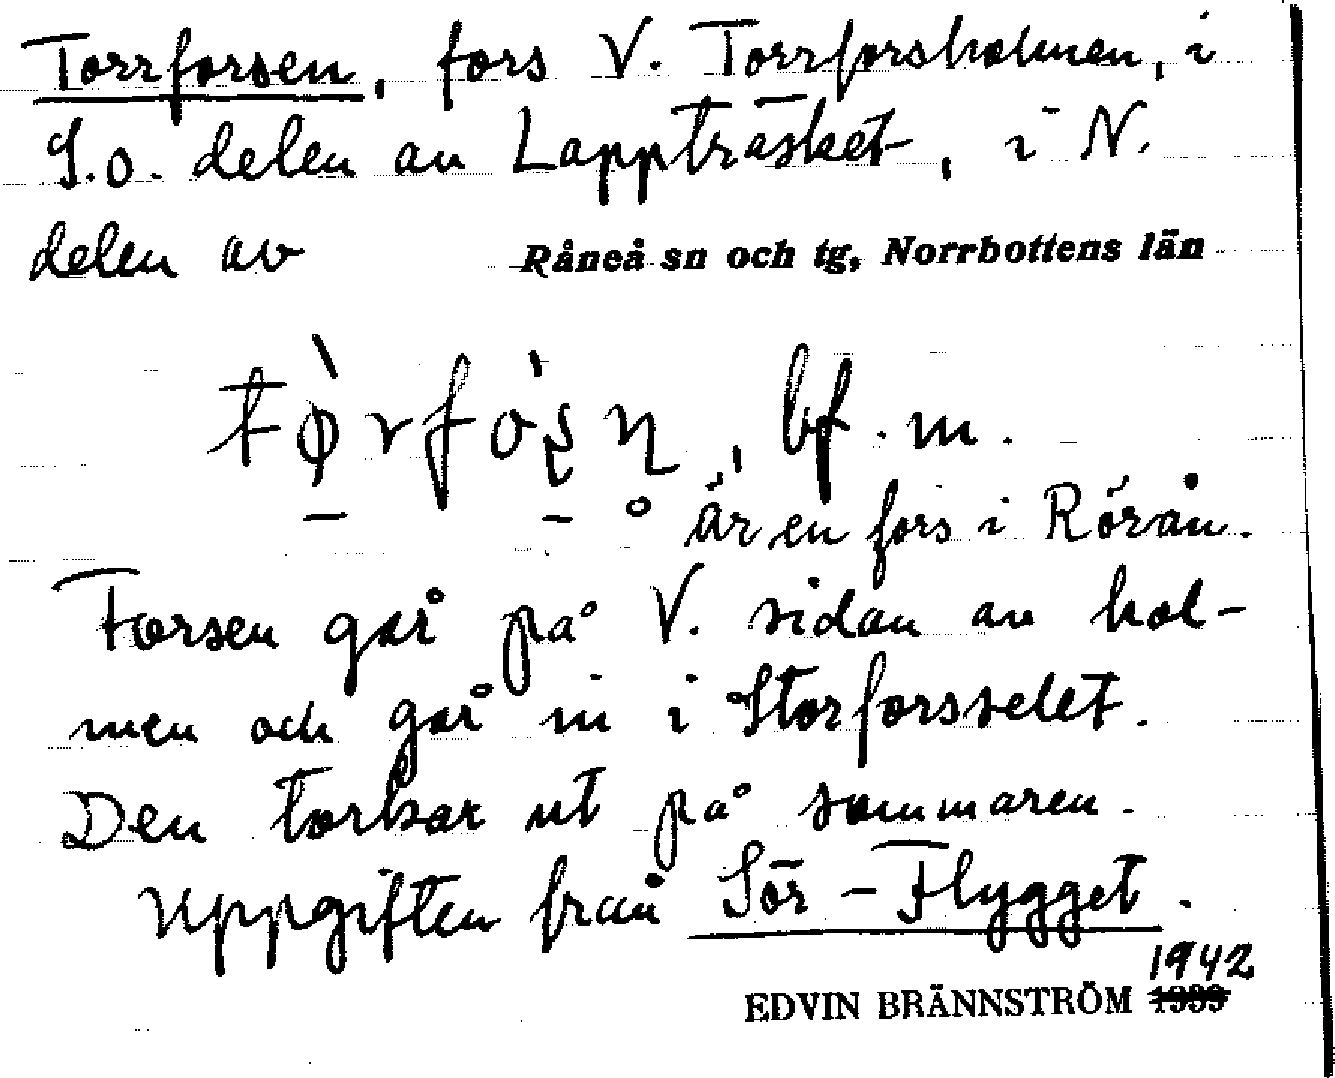 Torrforsen, fors V. Torrforsholmen, i
S.o. delen av Lappträsket, i N.
delen av Råneå sn och tg, Norrbottens län
bf. m.
är en fors i Rörån.
Forsen går på V. sidan av hol-
men och går in i Storforsselet.
Den torkar ut på sommaren.
Uppgiften från Sör-Flygget.
1942
EDVIN BRÄNNSTRÖM 1939